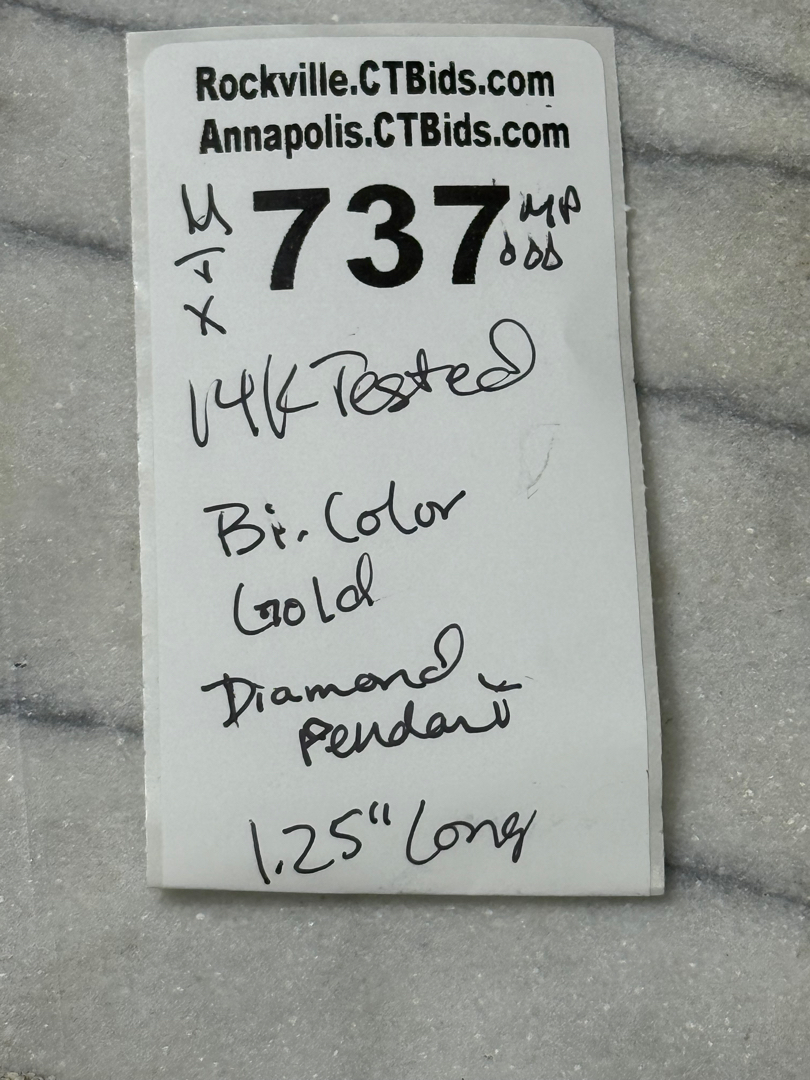 Rockville.CTBids.com
Annapolis.CTBids.com
737 MP
14K Tested
Bi. Color
Gold
Diamond
Pendant
1.25" Long